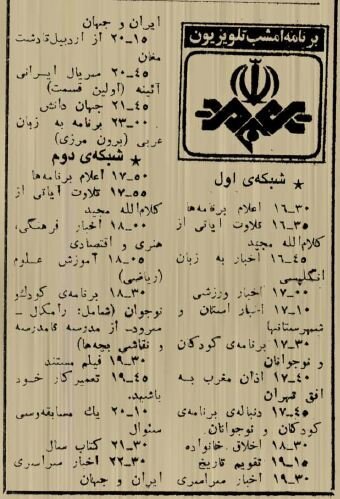 برنامه امشب تلویزیون
★ شبکه‌ی اول
۱۶-۳۰ اعلام برنامه‌ها
۱۶-۳۵ تلاوت آیاتی از
کلام‌الله مجید
۱۶-۴۵ اخبار به زبان
انگلیسی
۱۷-۰۰ اخبار ورزشی
۱۷-۱۰ اخبار استان و
شهرستانها
۱۷-۳۰ برنامه‌ی کودکان
و نوجوانان
۱۷-۴۰ اذان مغرب به
افق تهران
۱۷-۴۵ دنباله‌ی برنامه‌ی
کودکان و نوجوانان
۱۸-۳۰ اخلاق خانواده
۱۹-۱۵ تقویم تاریخ
۱۹-۳۰ اخبار سراسری
ایران و جهان
۲۰-۱۵ از اردبیل تا دشت
مغان
۲۰-۴۵ سریال ایرانی
آئینه (اولین قسمت)
۲۱-۴۵ جهان دانش
۲۳-۰۰ برنامه به زبان
عربی (برون مرزی)
★ شبکه‌ی دوم
۱۷-۵۰ اعلام برنامه‌ها
۱۷-۵۵ تلاوت آیاتی از
کلام‌الله مجید
۱۸-۰۰ اخبار فرهنگی،
هنری و اقتصادی
۱۸-۰۵ آموزش علوم
(ریاضی)
۱۸-۳۰ برنامه‌ی کودک و
نوجوان (شامل: رامکال -
سرود- از مدرسه تا مدرسه
و نقاشی بچه‌ها)
۱۹-۳۰ فیلم مستند
۱۹-۴۵ تعمیرکار خود
باشید.
۲۰-۱۰ یك مسابقه و سی
سئوال
۲۱-۳۰ کتاب سال
۲۲-۳۰ اخبار سراسری
ایران و جهان